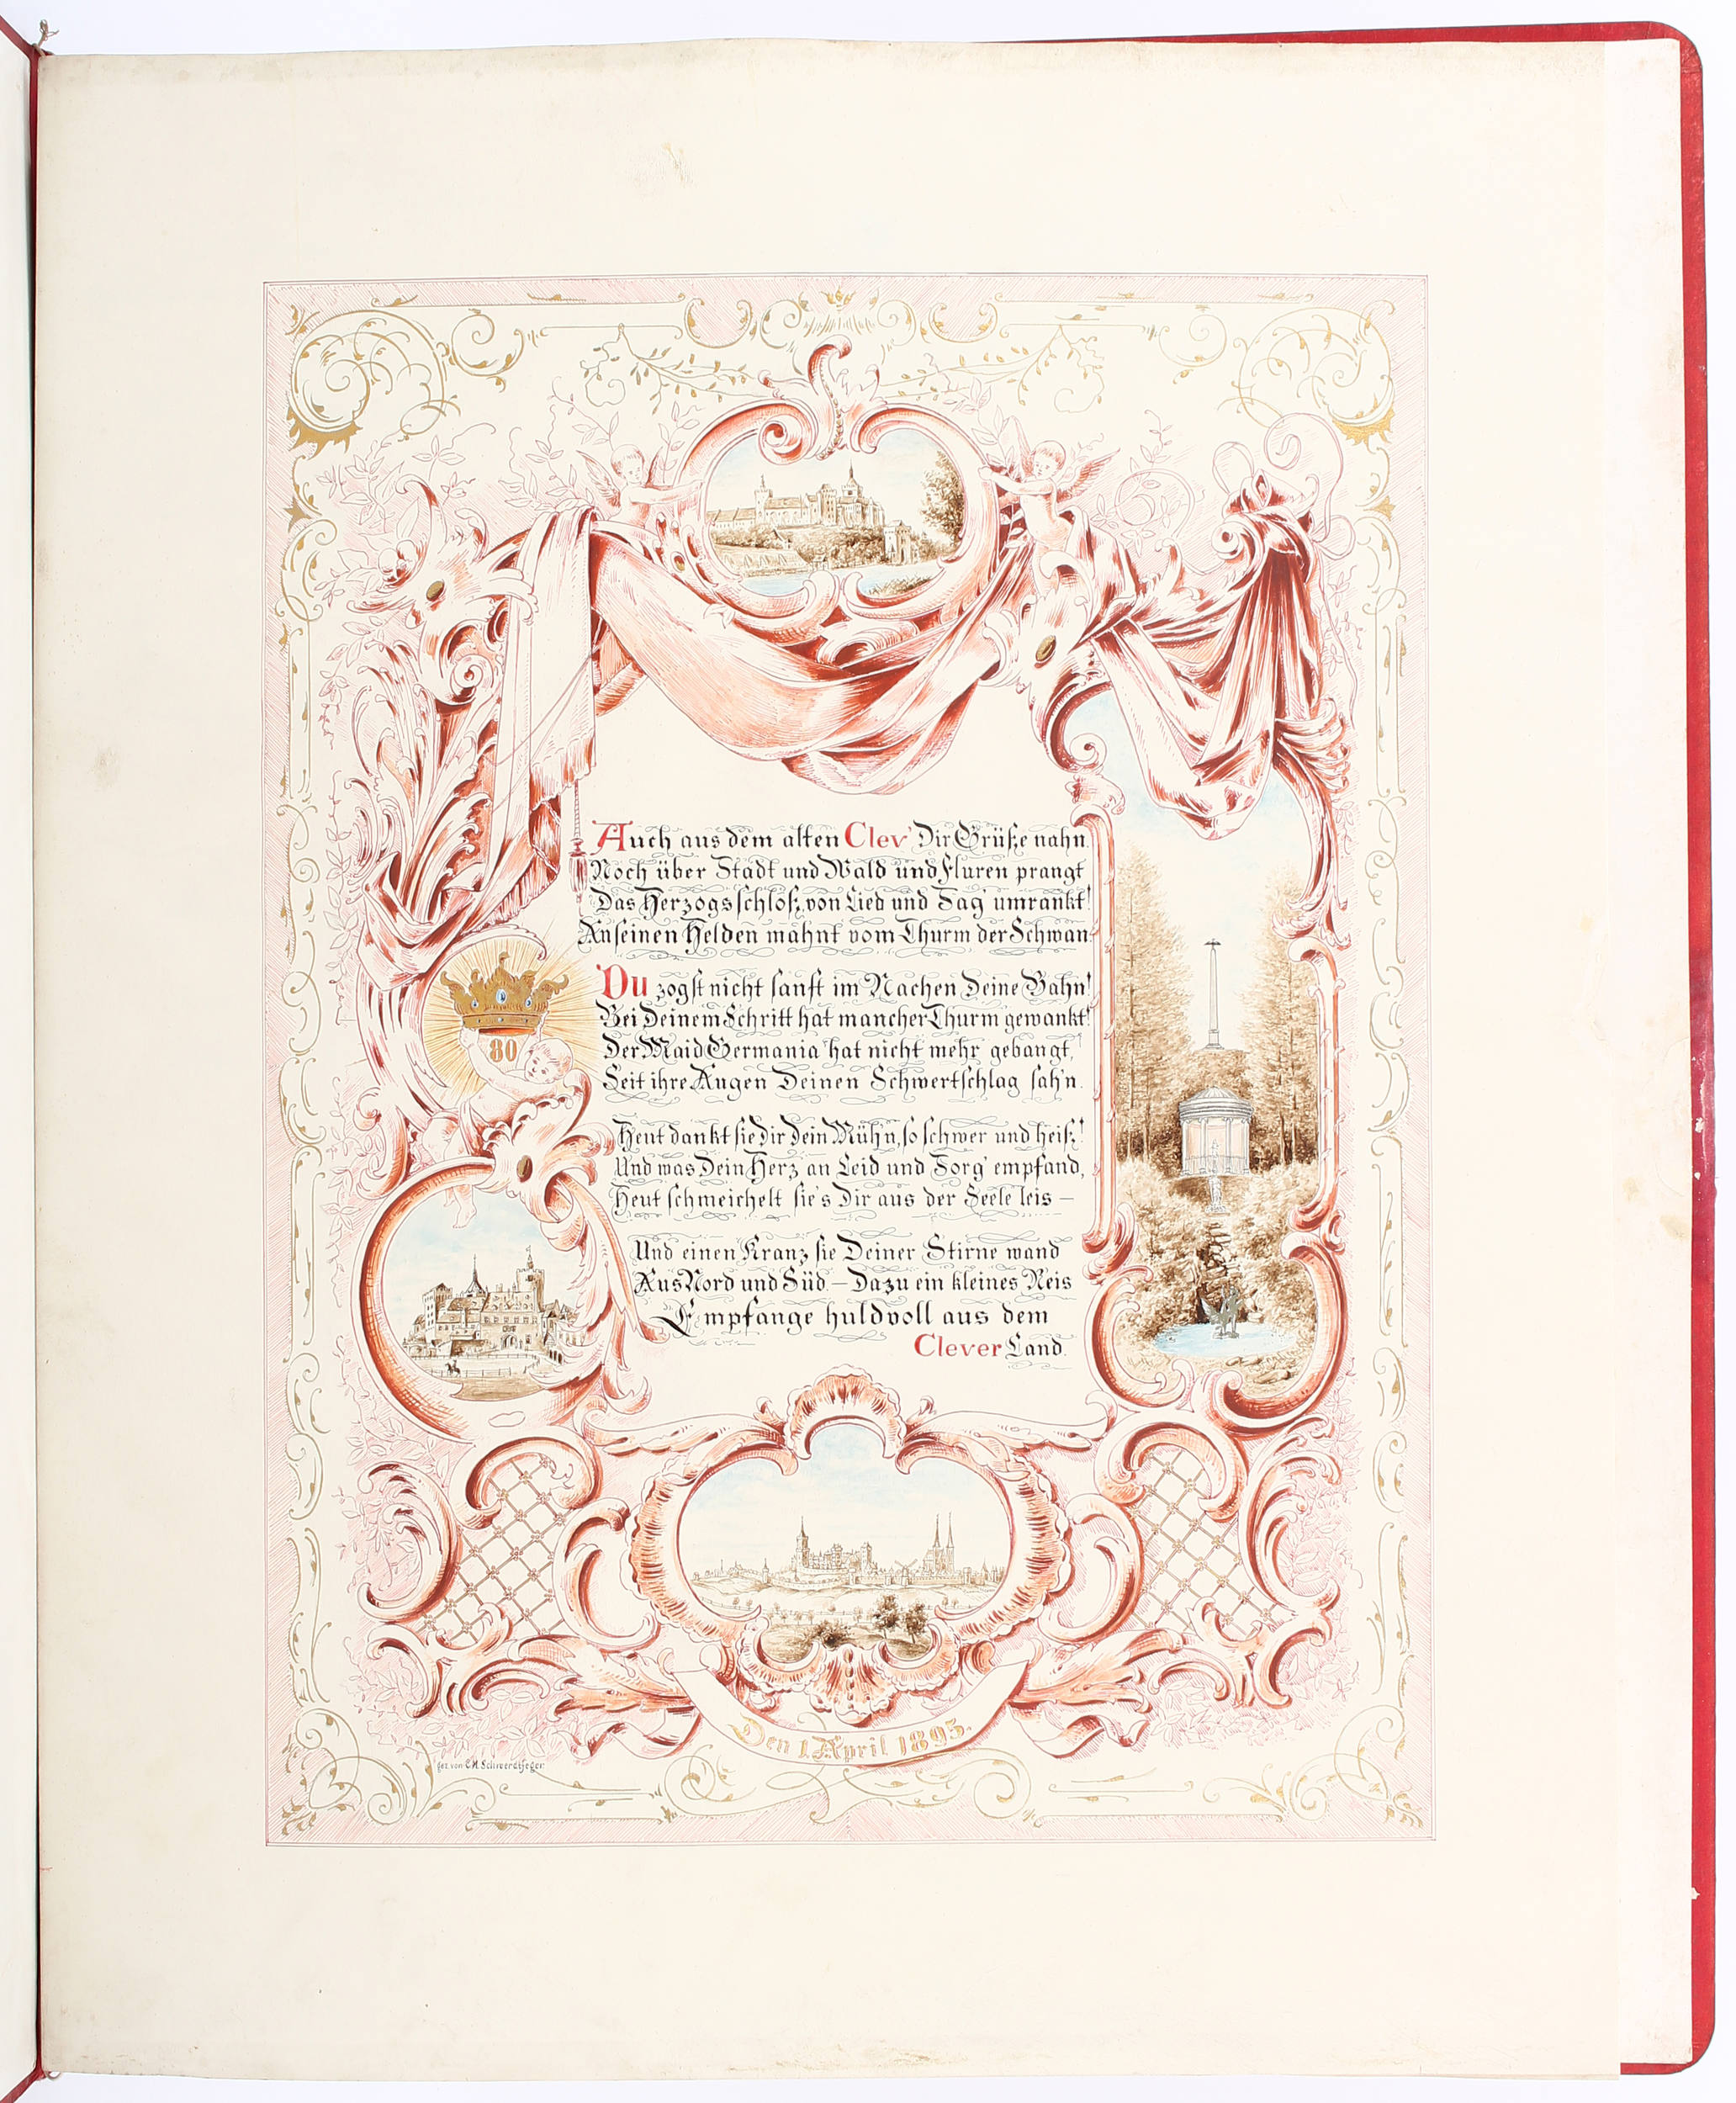 Auch aus dem alten Clev' Dir Grüße nahn.
Noch über Stadt und Wald und Fluren prangt
Das Herzogsschloß, von Lied und Sag' umrankt!
An seinen Helden mahnt vom Thurm der Schwan.
Du zogst nicht sanft im Nachen Deine Bahn!
Bei Deinem Schritt hat mancher Thurm gewankt!
Der Maid Germania hat nicht mehr gebangt,
Seit ihre Augen Deinen Schwertschlag sah'n.
80
Heut dankt sie Dir Dein Müh'n, so schwer und heiß!
Und was Dein Herz an Leid und Sorg' empfand,
Heut schmeichelt sie's Dir aus der Seele leis –
Und einen Kranz sie Deiner Stirne wand
Aus Nord und Süd. – Dazu ein kleines Reis
Empfange huldvoll aus dem
Clever Land.
Den 1. April 1895.
gez. von C. H. Schwerdtfeger